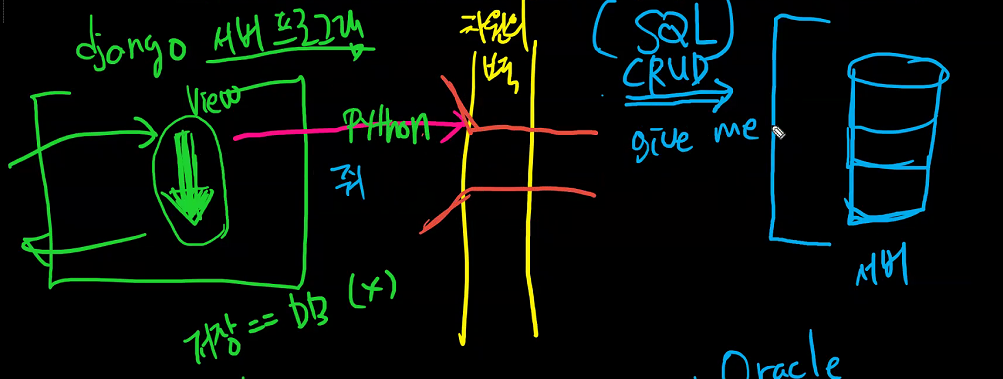 django 서버 프로그램
View
Python
줘
저장 == DB (X)
(SQL)
CRUD
give me
서버
Oracle